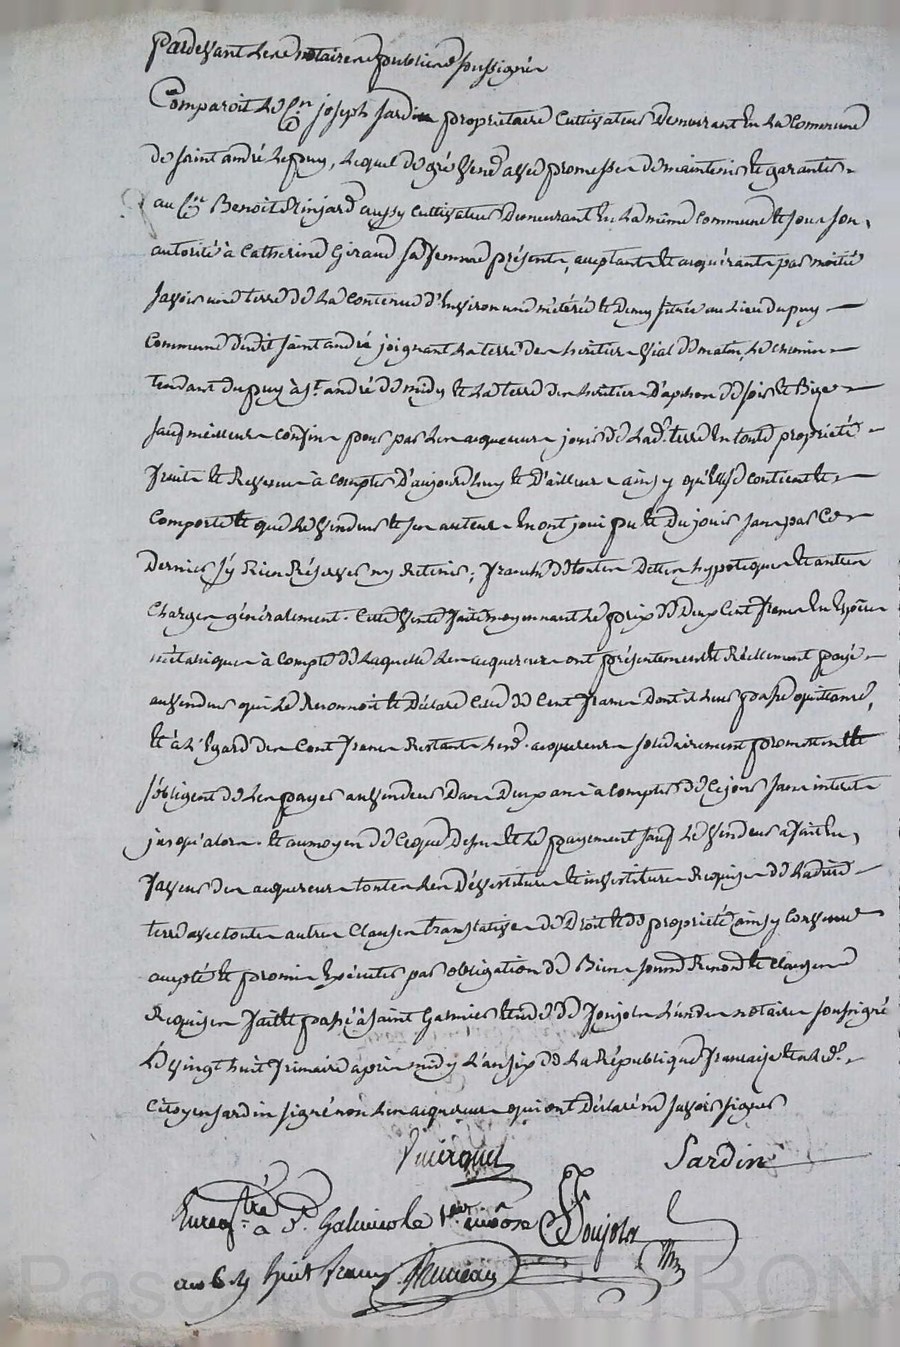 Pardevant les notaires publics soussignés
Comparoit le Cen joseph jardin proprietaire Cultivateur Demeurant en La Commune
de saint andré Lepuy, Lequel de gré Vend avec promesse de maintenir et garantir
au Cen Benoit aussy Cultivateur Demeurant en La même Commune et sous son
autorité à Catherine Giraud sa femme présents, acceptants et acquérants par moitié
savoir une terre de La Contenue d'Environ une méterée et Demy située au Lieu du puy
Commune dudit saint andré joignant La terre des héritiers Vial de matin, Le chemin
tendant du puy à st andré de midy et La terre des héritiers D'apinon de soir et Bize
sauf meilleurs confins pour par Les acquereurs jouir de Lade terre En toute propriété
fruits et Revenus à compter D'aujourd'huy et D'ailleurs ainsy qu'Elle se contient et
Comporte et que Le Vendeur et ses auteurs En ont joui pu et Du jouir sans par Ce
Dernier s'y Rien Réserver ny Retenir; franche de toutes Dettes hypoteques et autres
Charges généralement. Cette Vente faite moyennant Le prix de Deux Cent francs En Espèces
métaliques à Compte de Laquelle Les acquereurs ont présentement et Réellement payé
au Vendeur qui Le Reconnoit et Déclare Celle de Cent francs Dont il Leur passe quittance,
Et à L'Egard des Cent francs Restants Lesd. acquereurs solidairement promettent et
s'obligent de Les payer au Vendeur Dans Deux ans à Compter de Ce jour sans interets
jusqu'alors. Et au moyen de Ce que Dessus et Le payement sauf Le Vendeur a fait En
faveur des acquereurs toutes Les Dévestitures et investitures Requises de Ladite
terre avec toutes autres Clauses translatives de Droit et de propriété ainsy Convenu
accepté et promis Exécuter par obligation de Biens soumis Renoncé et Clauses
Requises fait et passé à saint Galmier Etude de Jonjols L'un des notaires soussigné
Le Vingt huit frimaire après midy L'an six de La République française et a Led.
Citoyen jardin signé non Les acquereurs qui ont Déclaré ne savoir signer
Jardin
Enregtré à St Galmier le 1er nivose
an 6 huit francs